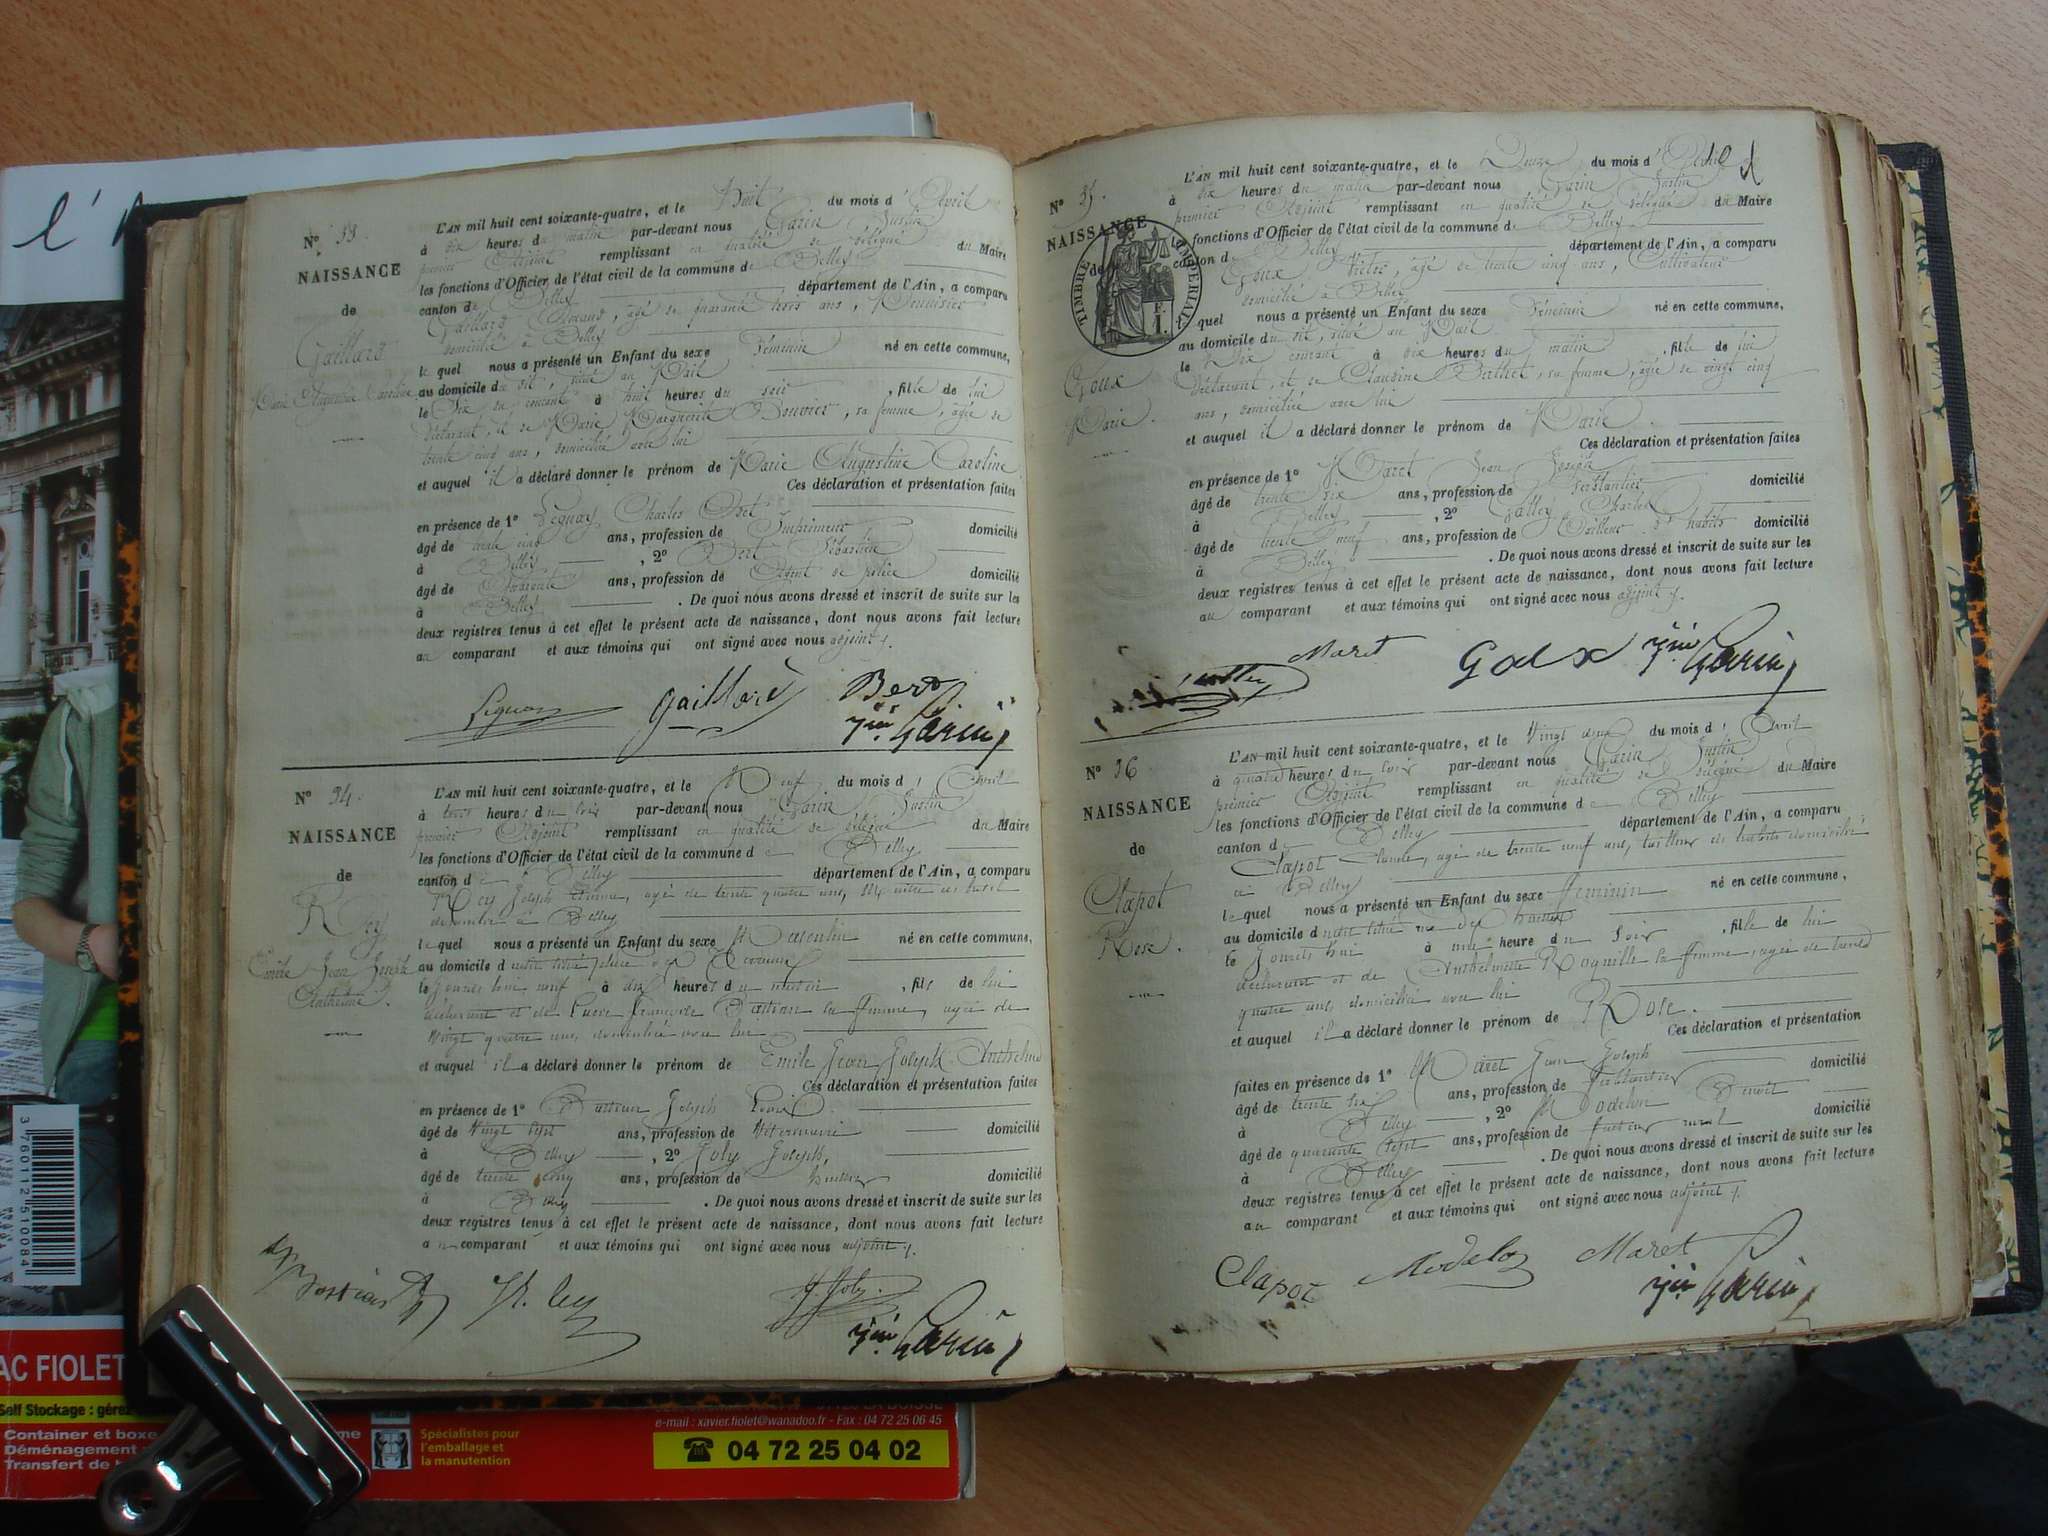 N° 33.
NAISSANCE
de
Gaillard
Marie Augustine Caroline
L'AN mil huit cent soixante-quatre, et le Huit du mois d' Avril
à dix heures du matin par-devant nous Garin Justin
premier Adjoint remplissant en qualité de délégué du Maire
les fonctions d'Officier de l'état civil de la commune de Belley
canton de Belley département de l'Ain, a comparu
Gaillard âgé de quarante trois ans, Menuisier
domicilié à Belley
lequel nous a présenté un Enfant du sexe Féminin né en cette commune,
au domicile du dit, situé au Mail
le Six du courant à huit heures du soir , fille de lui
déclarant, et de Marie Marguerite Bouvier, sa femme, âgée de
trente cinq ans, domiciliée avec lui
et auquel il a déclaré donner le prénom de Marie Augustine Caroline
Ces déclaration et présentation faites
en présence de 1° Peguay Charles
âgé de cinq ans, profession de Imprimeur domicilié
à Belley , 2° Bert Sébastien
âgé de Quarante ans, profession de Agent de police domicilié
à Belley . De quoi nous avons dressé et inscrit de suite sur les
deux registres tenus à cet effet le présent acte de naissance, dont nous avons fait lecture
au comparant et aux témoins qui ont signé avec nous adjoint
Gaillard Bert
Garin
N° 34.
NAISSANCE
de
Rey
Emile Jean Joseph
Anthelme.
L'AN mil huit cent soixante-quatre, et le Neuf du mois d' Avril
à trois heures du soir par-devant nous Garin Justin
premier Adjoint remplissant en qualité de délégué du Maire
les fonctions d'Officier de l'état civil de la commune de Belley
canton de Belley département de l'Ain, a comparu
Rey Joseph âgé de trente quatre ans, Maître d'hôtel
demeurant à Belley
lequel nous a présenté un Enfant du sexe Masculin né en cette commune,
au domicile du dit situé place des Terreaux
le jourd'hui neuf à dix heures du matin , fils de lui
déclarant et de Françoise Bastian sa femme, âgée de
vingt quatre ans, domiciliée avec lui
et auquel il a déclaré donner le prénom de Emile Jean Joseph Anthelme
Ces déclaration et présentation faites
en présence de 1° Bastian Joseph Louis
âgé de vingt sept ans, profession de Vétérinaire domicilié
à Belley , 2° Joly Joseph,
âgé de trente cinq ans, profession de huissier domicilié
à Belley . De quoi nous avons dressé et inscrit de suite sur les
deux registres tenus à cet effet le présent acte de naissance, dont nous avons fait lecture
au comparant et aux témoins qui ont signé avec nous adjoint
Bastian Joly
Garin
N° 35.
NAISSANCE
de
TIMBRE IMPÉRIAL
Goux
Marie.
L'AN mil huit cent soixante-quatre, et le Douze du mois d' Avril
à dix heures du matin par-devant nous Garin Justin
premier Adjoint remplissant en qualité de délégué du Maire
les fonctions d'Officier de l'état civil de la commune de Belley
canton de Belley département de l'Ain, a comparu
Goux Victor, âgé de trente cinq ans, Cultivateur
domicilié à Belley
lequel nous a présenté un Enfant du sexe Féminin né en cette commune,
au domicile du dit, situé au Mail
le Dix courant à dix heures du matin , fille de lui
déclarant, et de Claudine Berthet, sa femme, âgée de vingt cinq
ans, domiciliée avec lui
et auquel il a déclaré donner le prénom de Marie.
Ces déclaration et présentation faites
en présence de 1° Maret Jean Joseph
âgé de trente six ans, profession de Ferblantier domicilié
à Belley , 2° Galley Charles
âgé de trente neuf ans, profession de Tailleur d'habits domicilié
à Belley . De quoi nous avons dressé et inscrit de suite sur les
deux registres tenus à cet effet le présent acte de naissance, dont nous avons fait lecture
au comparant et aux témoins qui ont signé avec nous adjoint
Maret Goux Garin
N° 36
NAISSANCE
de
Clapot
Rose.
L'AN mil huit cent soixante-quatre, et le vingt deux du mois d' Avril
à quatre heures du soir par-devant nous Garin Justin
premier Adjoint remplissant en qualité de délégué du Maire
les fonctions d'Officier de l'état civil de la commune de Belley
canton de Belley département de l'Ain, a comparu
Clapot Claude, âgé de trente neuf ans, tailleur de habits domicilié
à Belley
lequel nous a présenté un Enfant du sexe féminin né en cette commune,
au domicile du dit situé rue des
le jourd'hui à une heure du soir , fille de lui
déclarant et de Anthelmette sa femme, âgée de trente
quatre ans, domiciliée avec lui
et auquel il a déclaré donner le prénom de Rose.
Ces déclaration et présentation
faites en présence de 1° Maret Jean Joseph domicilié
âgé de trente six ans, profession de Ferblantier
à Belley , 2° Modelon Benoît domicilié
âgé de quarante sept ans, profession de facteur rural
à Belley . De quoi nous avons dressé et inscrit de suite sur les
deux registres tenus à cet effet le présent acte de naissance, dont nous avons fait lecture
au comparant et aux témoins qui ont signé avec nous adjoint
Clapot Modelon Maret
Garin
l'
3 760112 510084
AC FIOLET
Self Stockage : gérez
Container et boxe
Déménagement
Transfert de
Spécialistes pour
l'emballage et
la manutention
e-mail : xavier.fiolet@wanadoo.fr - Fax : 04 72 25 06 45
04 72 25 04 02